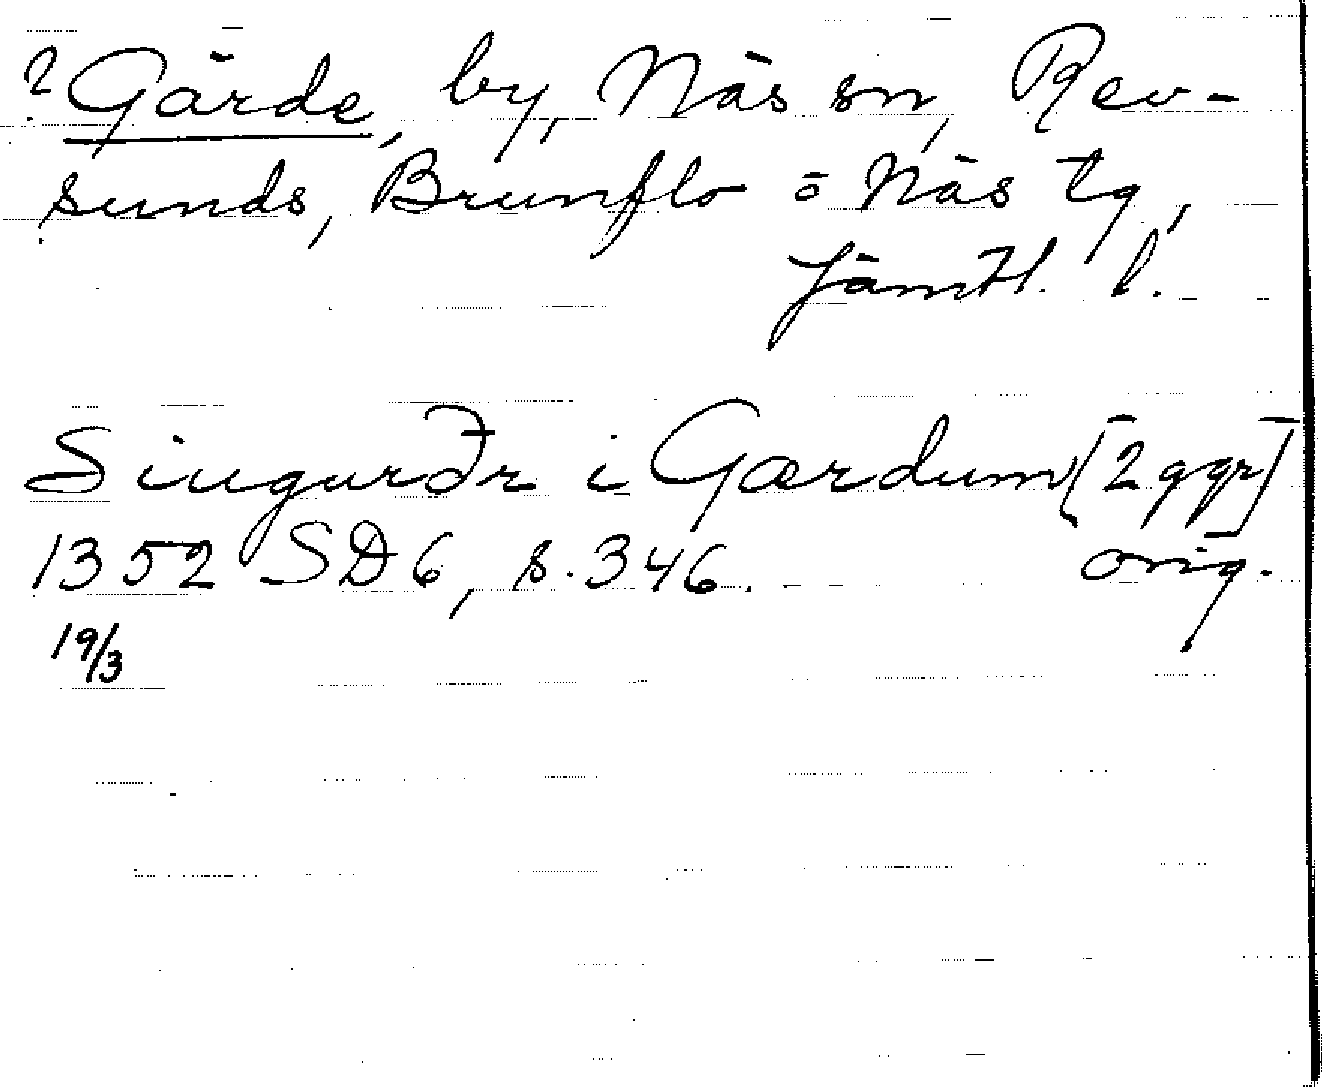 ? Gärde, by, Näs sn, Rev-
sunds, Brunflo o Näs tg,
Jämtl. l.
Siugurðr i Gærdum [2 ggr]
1352 SD 6, s. 346. orig.
19/3